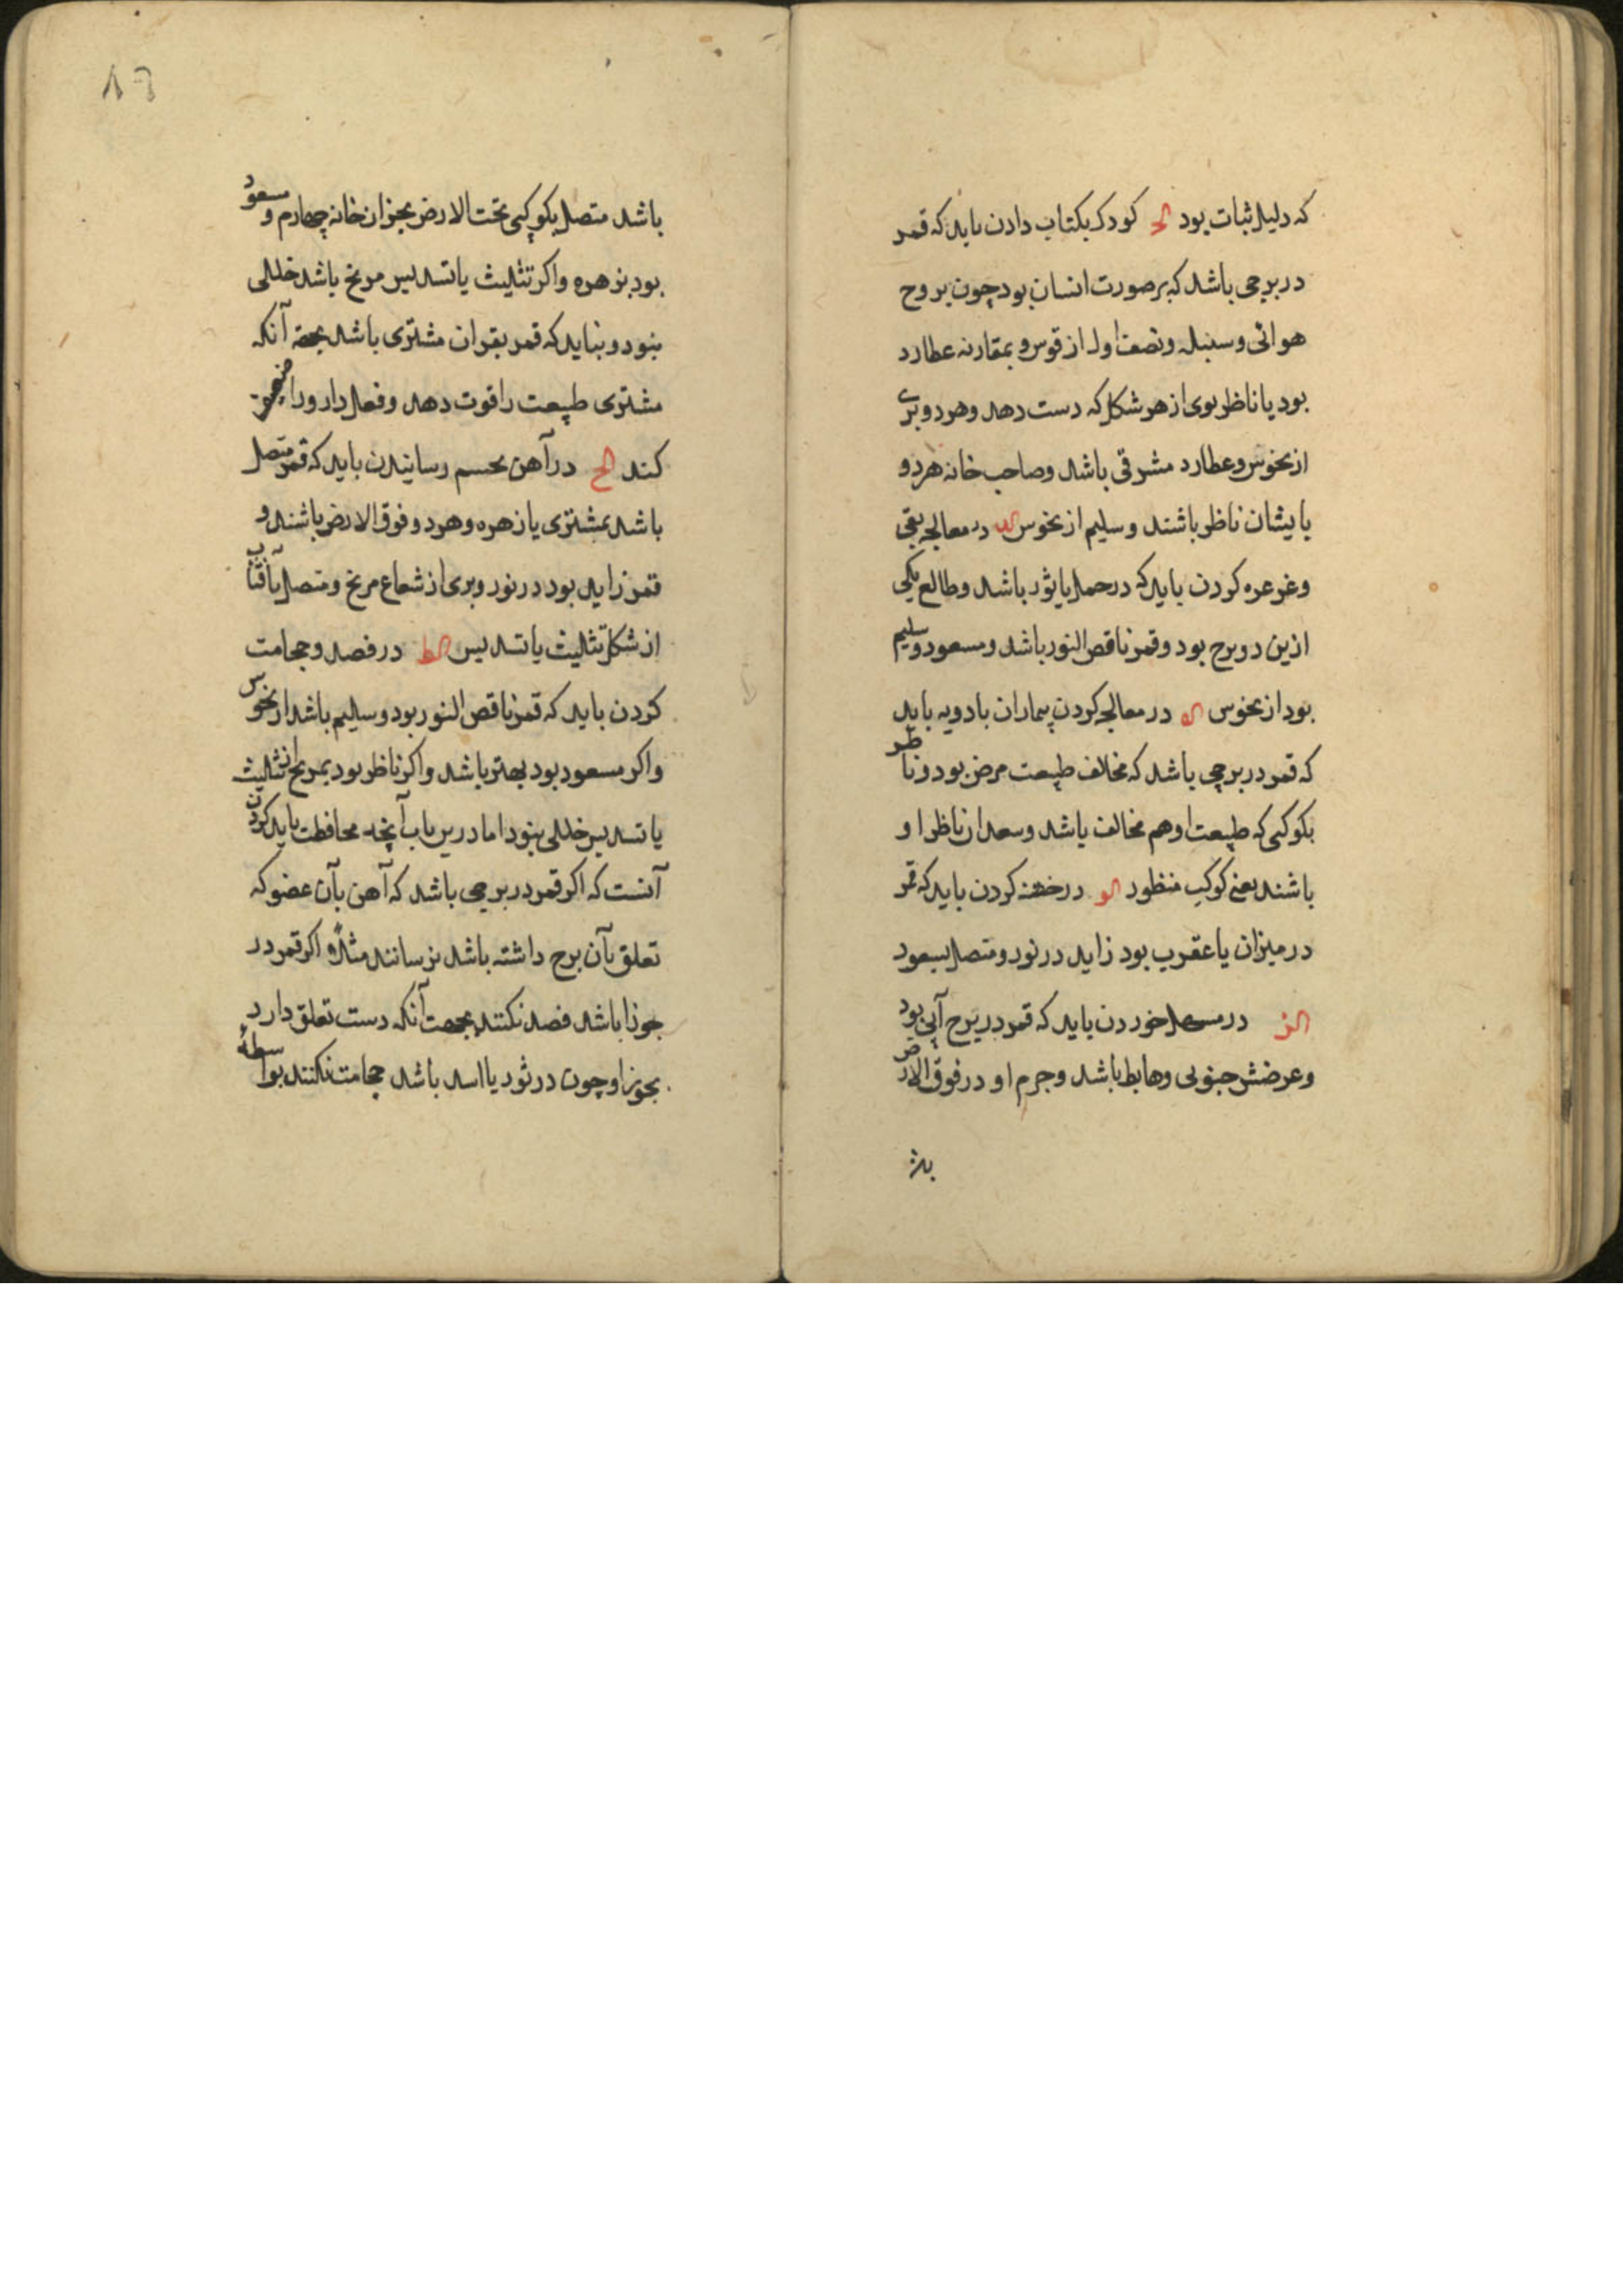 که دلیل ثبات بود الح کودک بکتاب دادن باید که قمر
در برجی باشد که بر صورت انسان بود چون بروج
هوائی و سنبله و نصف اول از قوس و بمقارنه عطارد
بود یا ناظر بوی از هر شکل که دست دهد و هر دو بری
از نحوس و عطارد مشرقی باشد و صاحب خانه هر دو
بایشان ناظر باشند و سلیم از نحوس الد در معالجه بقی
و غرغره کردن باید که در حمل یا ثور باشد و طالع یکی
ازین دو برج بود و قمر ناقص النور باشد و مسعود و سلیم
بود از نحوس اله در معالجه کردن بیماران بادویه باید
که قمر در برجی باشد که مخالف طبیعت مرض بود و ناظر
بکوکبی که طبیعت او هم مخالف باشد و سعدان ناظر او
باشند یعنی کوکب منظور الو در ختنه کردن باید که قمر
در میزان یا عقرب بود زاید در نور و متصل بسعود
الز در مسهل خوردن باید که قمر در برج آبی بود
و عرضش جنوبی و هابط باشد و جرم او در فوق الارض
باشد متصل بکوکبی تحت الارض بجز از خانه چهارم و مسعود
بود بزهره و اکر تثلیث یا تسدیس مریخ باشد خللی
نبود و نباید که قمر بقران مشتری باشد بجهة آنکه
مشتری طبیعت را قوت دهد و فعل دارو را ضعیف
کند الح در آهن بجسم رسانیدن باید که قمر متصل
باشد بمشتری یا زهره و هر دو فوق الارض باشند و
قمر زاید بود در نور و بری از شعاع مریخ و متصل بآفتاب
از شکل تثلیث یا تسدیس الط در فصد و حجامت
کردن باید که قمر ناقص النور بود و سلیم باشد از نحوس
و اکر مسعود بود بهتر باشد و اکر ناظر بود بمریخ از تثلیث
یا تسدیس خللی نبود اما درین باب آنچه محافظت باید کردن
آنست که اکر قمر در برجی باشد که آهن بآن عضو که
تعلق بآن برج داشته باشد نرسانند مثلاً و اکر قمر در
جوزا باشد فصد نکنند بجهت آنکه دست تعلق دارد
بجوزا و چون در ثور یا اسد باشد حجامت نکنند بواسطهٔ